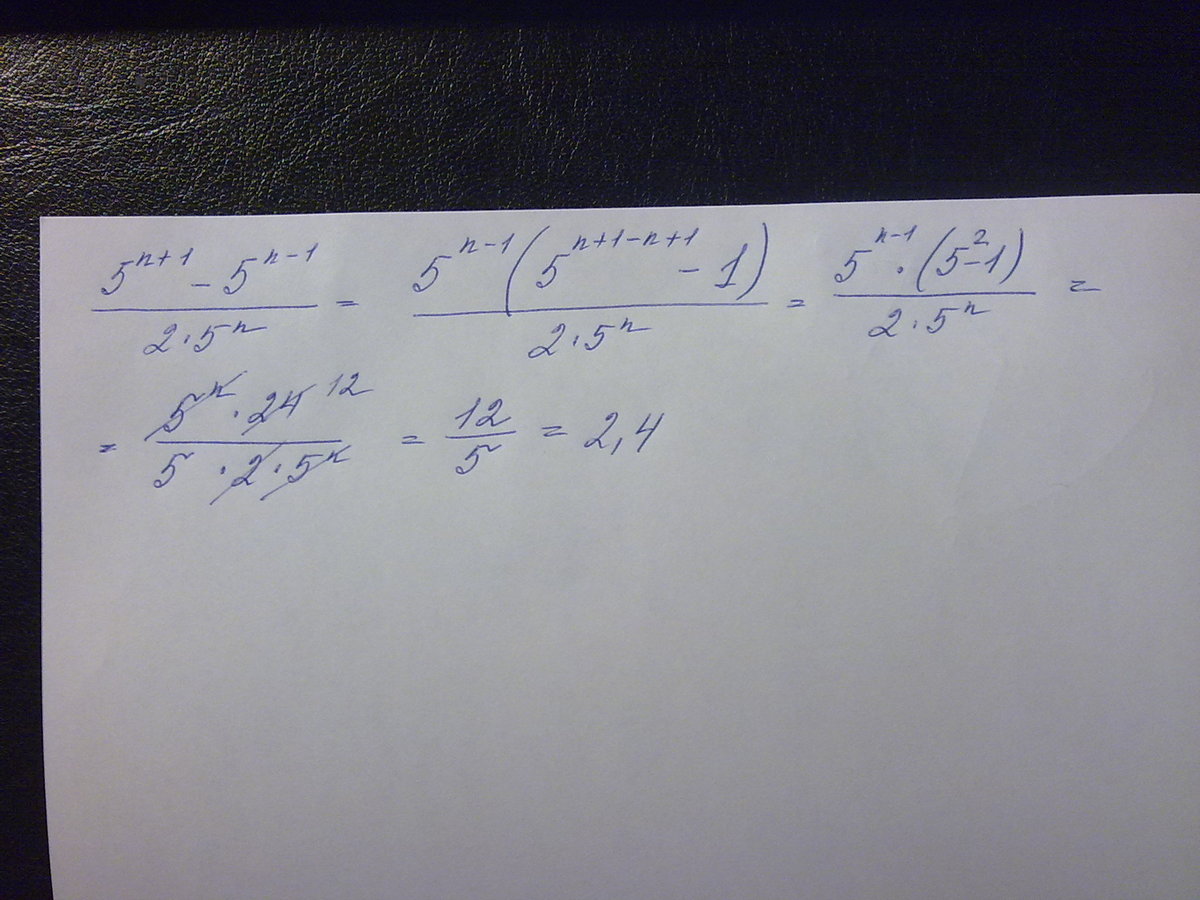 (5^{n+1} - 5^{n-1})/(2·5^n) = (5^{n-1}(5^{n+1-n+1} - 1))/(2·5^n) = (5^{n-1}·(5^2-1))/(2·5^n) =
= (5^n·24 12)/(5·2·5^n) = 12/5 = 2,4